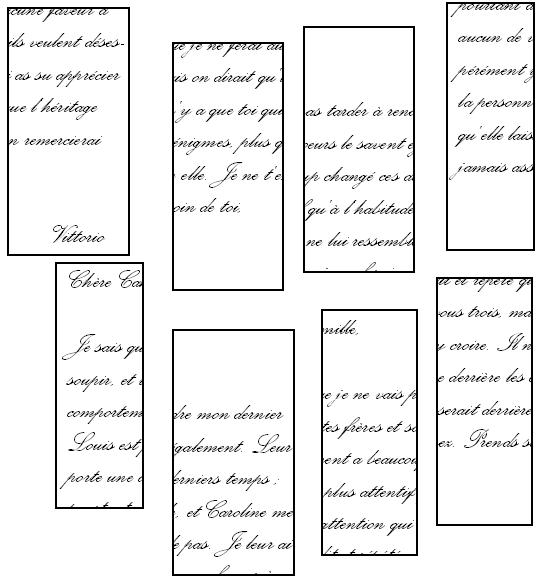 cune faveur à
ils veulent déses-
as su apprécier
ue l'héritage
n remercierai
Vittorio
ue je ne ferai au
is on dirait qu'
'y a que toi qui
énigmes, plus q
elle. Je ne t'e
oin de toi,
as tarder à rend
oeurs le savent é
up changé ces d
qu'à l'habitude
ne lui ressembl
pourtant d
aucun de v
pérément y
la personn
qu'elle lais
jamais ass
Chère Ca
Je sais qu
soupir, et
comportem
Louis est
porte une
dre mon dernier
également. Leur
erniers temps ;
, et Caroline me
e pas. Je leur ai
mille,
e je ne vais p
tes frères et so
ent a beaucou
plus attentif
attention qui
it et répété qu
ous trois, ma
y croire. Il n
e derrière les
serait derrière
ez. Prends s